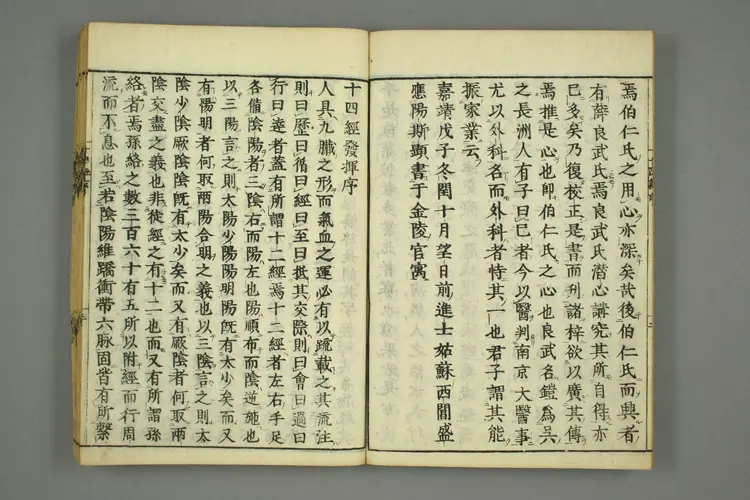 焉伯仁氏之用心亦深矣哉後伯仁氏而興者
有薛良武氏焉良武氏潜心講究其所自得亦
已多矣乃復校正是書而刋諸梓欲以廣其傳
焉推是心也卽伯仁氏之心也良武名鎧爲呉
之長洲人有子曰巳者今以醫判南京大醫事
尤以外科名而外科者特其一也君子謂其能
振家業云
嘉靖戊子冬閏十月望日前進士姑蘇西閶盛
應陽斯顯書于金陵官寓
十四經發揮序
人具九臟之形而氣血之運必有以疏載之其流注
則曰歷曰循曰經曰至曰抵其交際則曰會曰過曰
行曰達者蓋有所謂十二經焉十二經者左右手足
各備陰陽者三陰右而陽左也陽順布而陰逆施也
以三陽言之則太陽少陽陽明陽旣有太少矣而又
有陽明者何取兩陽合明之義也以三陰言之則太
陰少陰厥陰陰旣有太少矣而又有厥陰者何取兩
陰交盡之義也非徒經之有十二也而又有所謂孫
絡者焉孫絡之數三百六十有五所以附經而行周
流而不息也至若陰陽維蹻衝帶六脉固皆有所繋